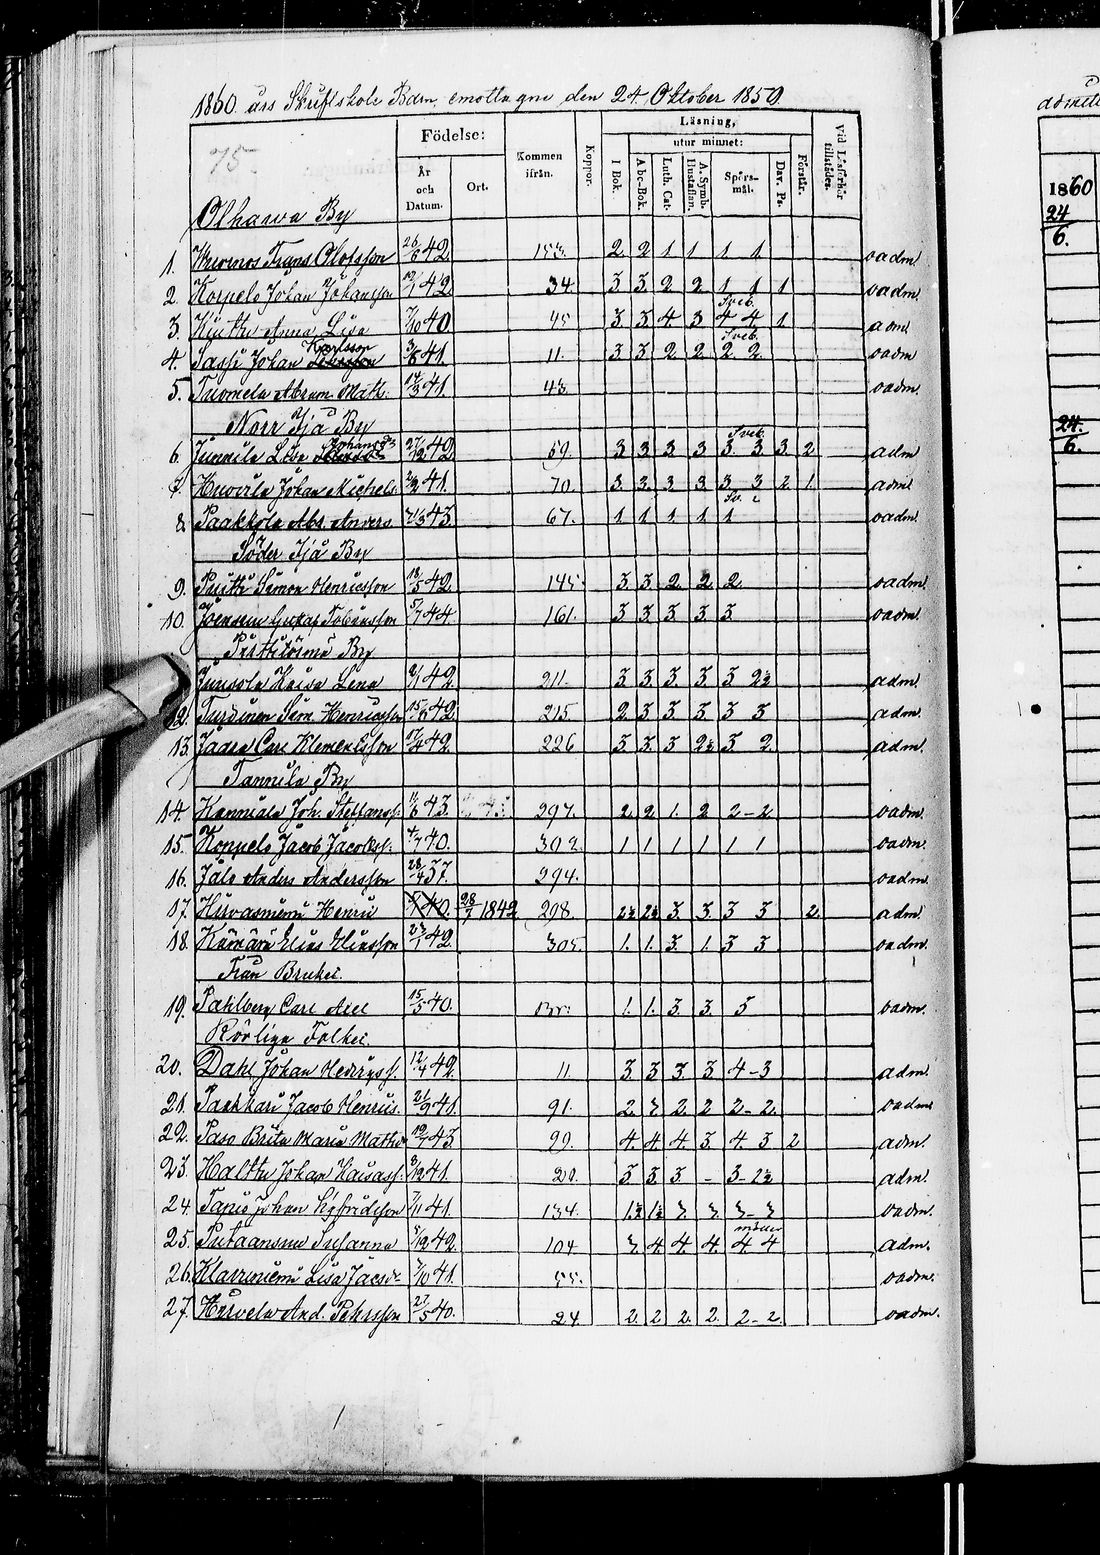 1860 års Skriftskole Barn, emottagne den 24 Oktober 1859.
75.
Födelse:
År och Datum.
Ort.
Kommen ifrån.
Koppor.
Läsning,
utur minnet:
I Bok.
Abc-Bok.
Luth. Cat.
A. Symb. Hustaflan.
Spörsmål.
Dav. Ps.
Förstår.
Vid Läsförhör tillstädes.
Olhawa By
1. Frans Olofsson 26/6 42 153. 2 2 1 1 1 1 oadm
2. Korpela Johan Johansson 19/1 42 34 3 3 2 2 1 1 1 oadm.
Sveb.
3. Anna Lisa 7/10 40 45 3 3 4 3 4 4 1 adm.
Karlsson
Sveb.
4. Sassi Johan 3/8 41. 11. 3 3 2 2 2 2 oadm
5. Tuomela Abram Matts. 14/3 41. 43. oadm.
Norr Ijå By
Johansdr
Sveb.
6. Junnila Lisa 27/12 42 59 3 3 3 3 3 3 3 2 adm
7. Huovila Johan Michels. 2/2 41. 70. 3. 3. 3 3 3 3 2 1 adm
Sv.
8. Paakkola Abr. Anders. 21/3 43. 67. 1 1 1 1 1 oadm.
Söder Ijå By
9. Simon Henricsson 18/5 42. 145. 3 3 2 2 2 oadm.
10. Joensuu Gustaf Tobiasson 5/7 44. 161. 3 3 3 3 3 oadm.
By
Jussola Kaisa Lena 9/1 42. 211. 3 3. 3 3 3 2½ adm.
12. Turtinen Sim. Henricsson 15/6 42. 215 2 3 3 3 3 3 adm.
13. Jaara Carl Klementsson 17/4 42. 226 3 3. 3 2½ 3 2 adm.
Tannila By
14. Joh. Steffanss. 11/6 43. 297. 2 2 1. 2 2-2 oadm.
15. Koppelo Jacob Jacobss. 4/7 40. 302. 1 1 1 1 1 1 oadm.
16. Jalo Anders Andersson 28/4 37. 294. oadm.
17. Hirvasniemi Henric 28/7 1842 298. 2½ 2½ 3. 3. 3 3 2 adm.
18. Kämärä Elias Eliasson 23/1 42. 305. 1. 1. 3. 1. 3 3 oadm.
Från Bruket.
19. Pahlberg Carl Axel 15/5 40. Br: 1. 1. 3. 3. 3 oadm.
Rörliga Folket.
20. Dahl Johan 12/4 42. 11. 3. 3 3 3 4-3 adm.
21. Paakkari Jacob Henrics. 21/9 41. 91. 2. 3 2. 2 2-2. oadm
22. Paso Brita Maria 19/7 43 99. 4. 4. 4 3 4 3 2 adm.
23. Johan 8/12 41. 20. 3 3. 3 - 3-2½ adm.
24 Johan 7/11 41. 134. 1½ 1½ 3. 3. 3-3 oadm.
25. Putaansuu Susanna 5/12 42. 104 3 4 4 4 4 4 adm.
26. Lisa 7/10 41. 55. oadm.
27. And. Pehrsson 27/5 40. 24 2. 2 2. 2. 2-2 oadm.
1860
24
6.
24.
6.